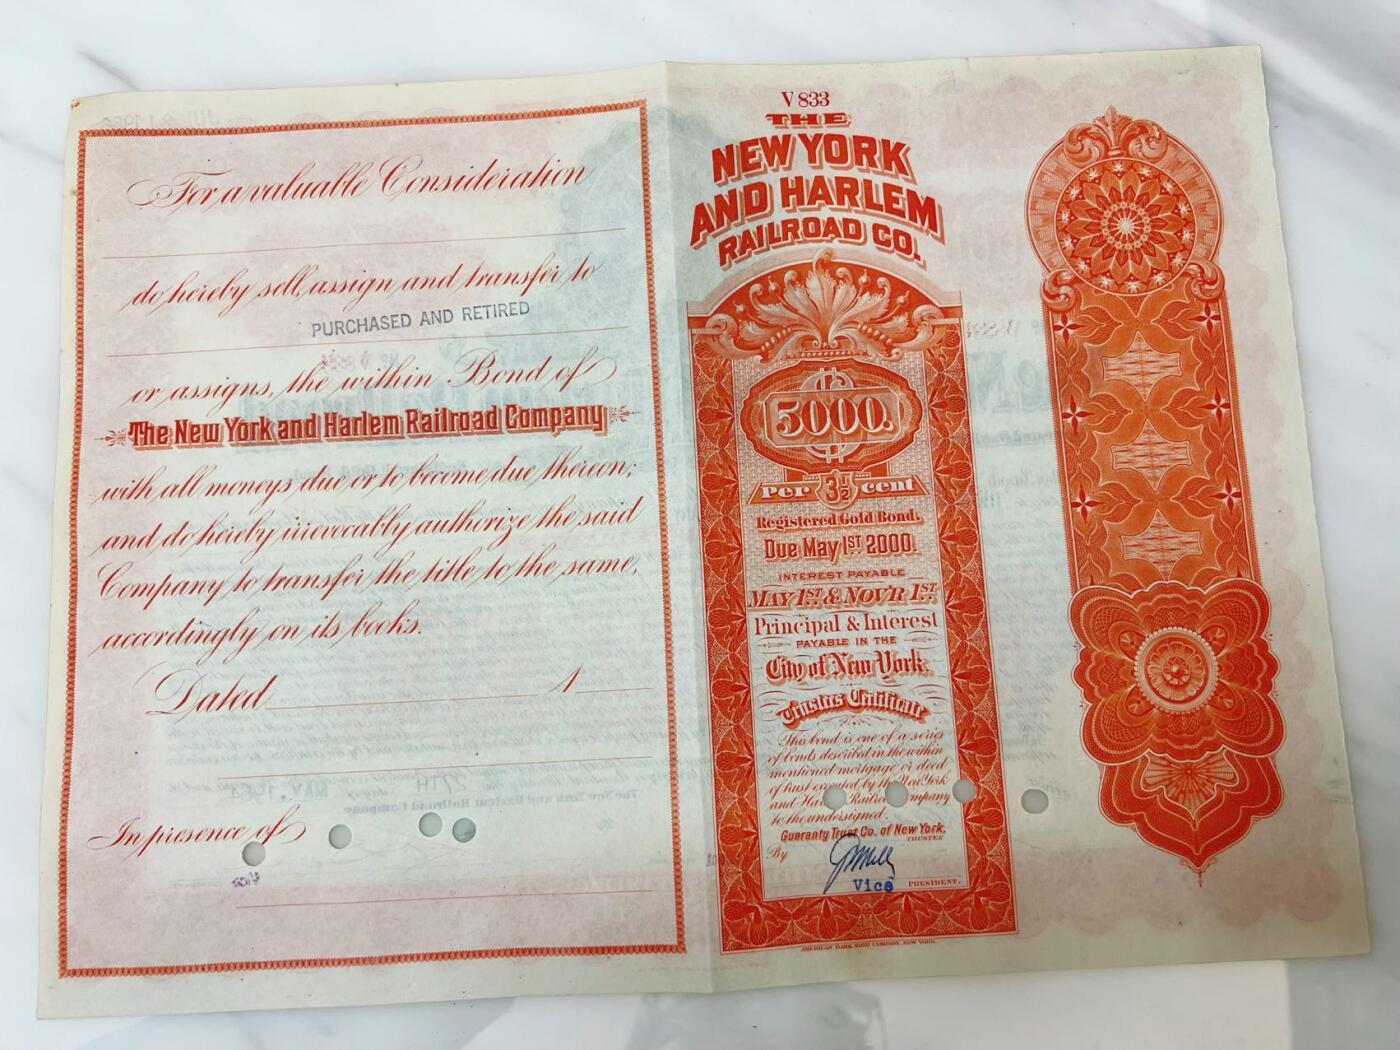 For a valuable Consideration
do hereby sell, assign and transfer to
PURCHASED AND RETIRED
or assigns, the within Bond of
The New York and Harlem Railroad Company
with all moneys due or to become due thereon;
and do hereby irrevocably authorize the said
Company to transfer the title to the same,
accordingly on its books.
Dated 1
In presence of
V 833
THE
NEW YORK
AND HARLEM
RAILROAD CO.
5000.
Per 3½ cent
Registered Gold Bond.
Due May 1ST 2000.
INTEREST PAYABLE
MAY 1ST & NOVR 1ST
Principal & Interest
PAYABLE IN THE
City of New York.
Trustees Certificate
This bond is one of a series
of bonds described in the within
mentioned mortgage or deed
of trust executed by the New York
and Railroad Company
to the undersigned.
Guaranty Trust Co. of New York,
TRUSTEE
By
Vice PRESIDENT.
AMERICAN BANK NOTE COMPANY, NEW YORK.